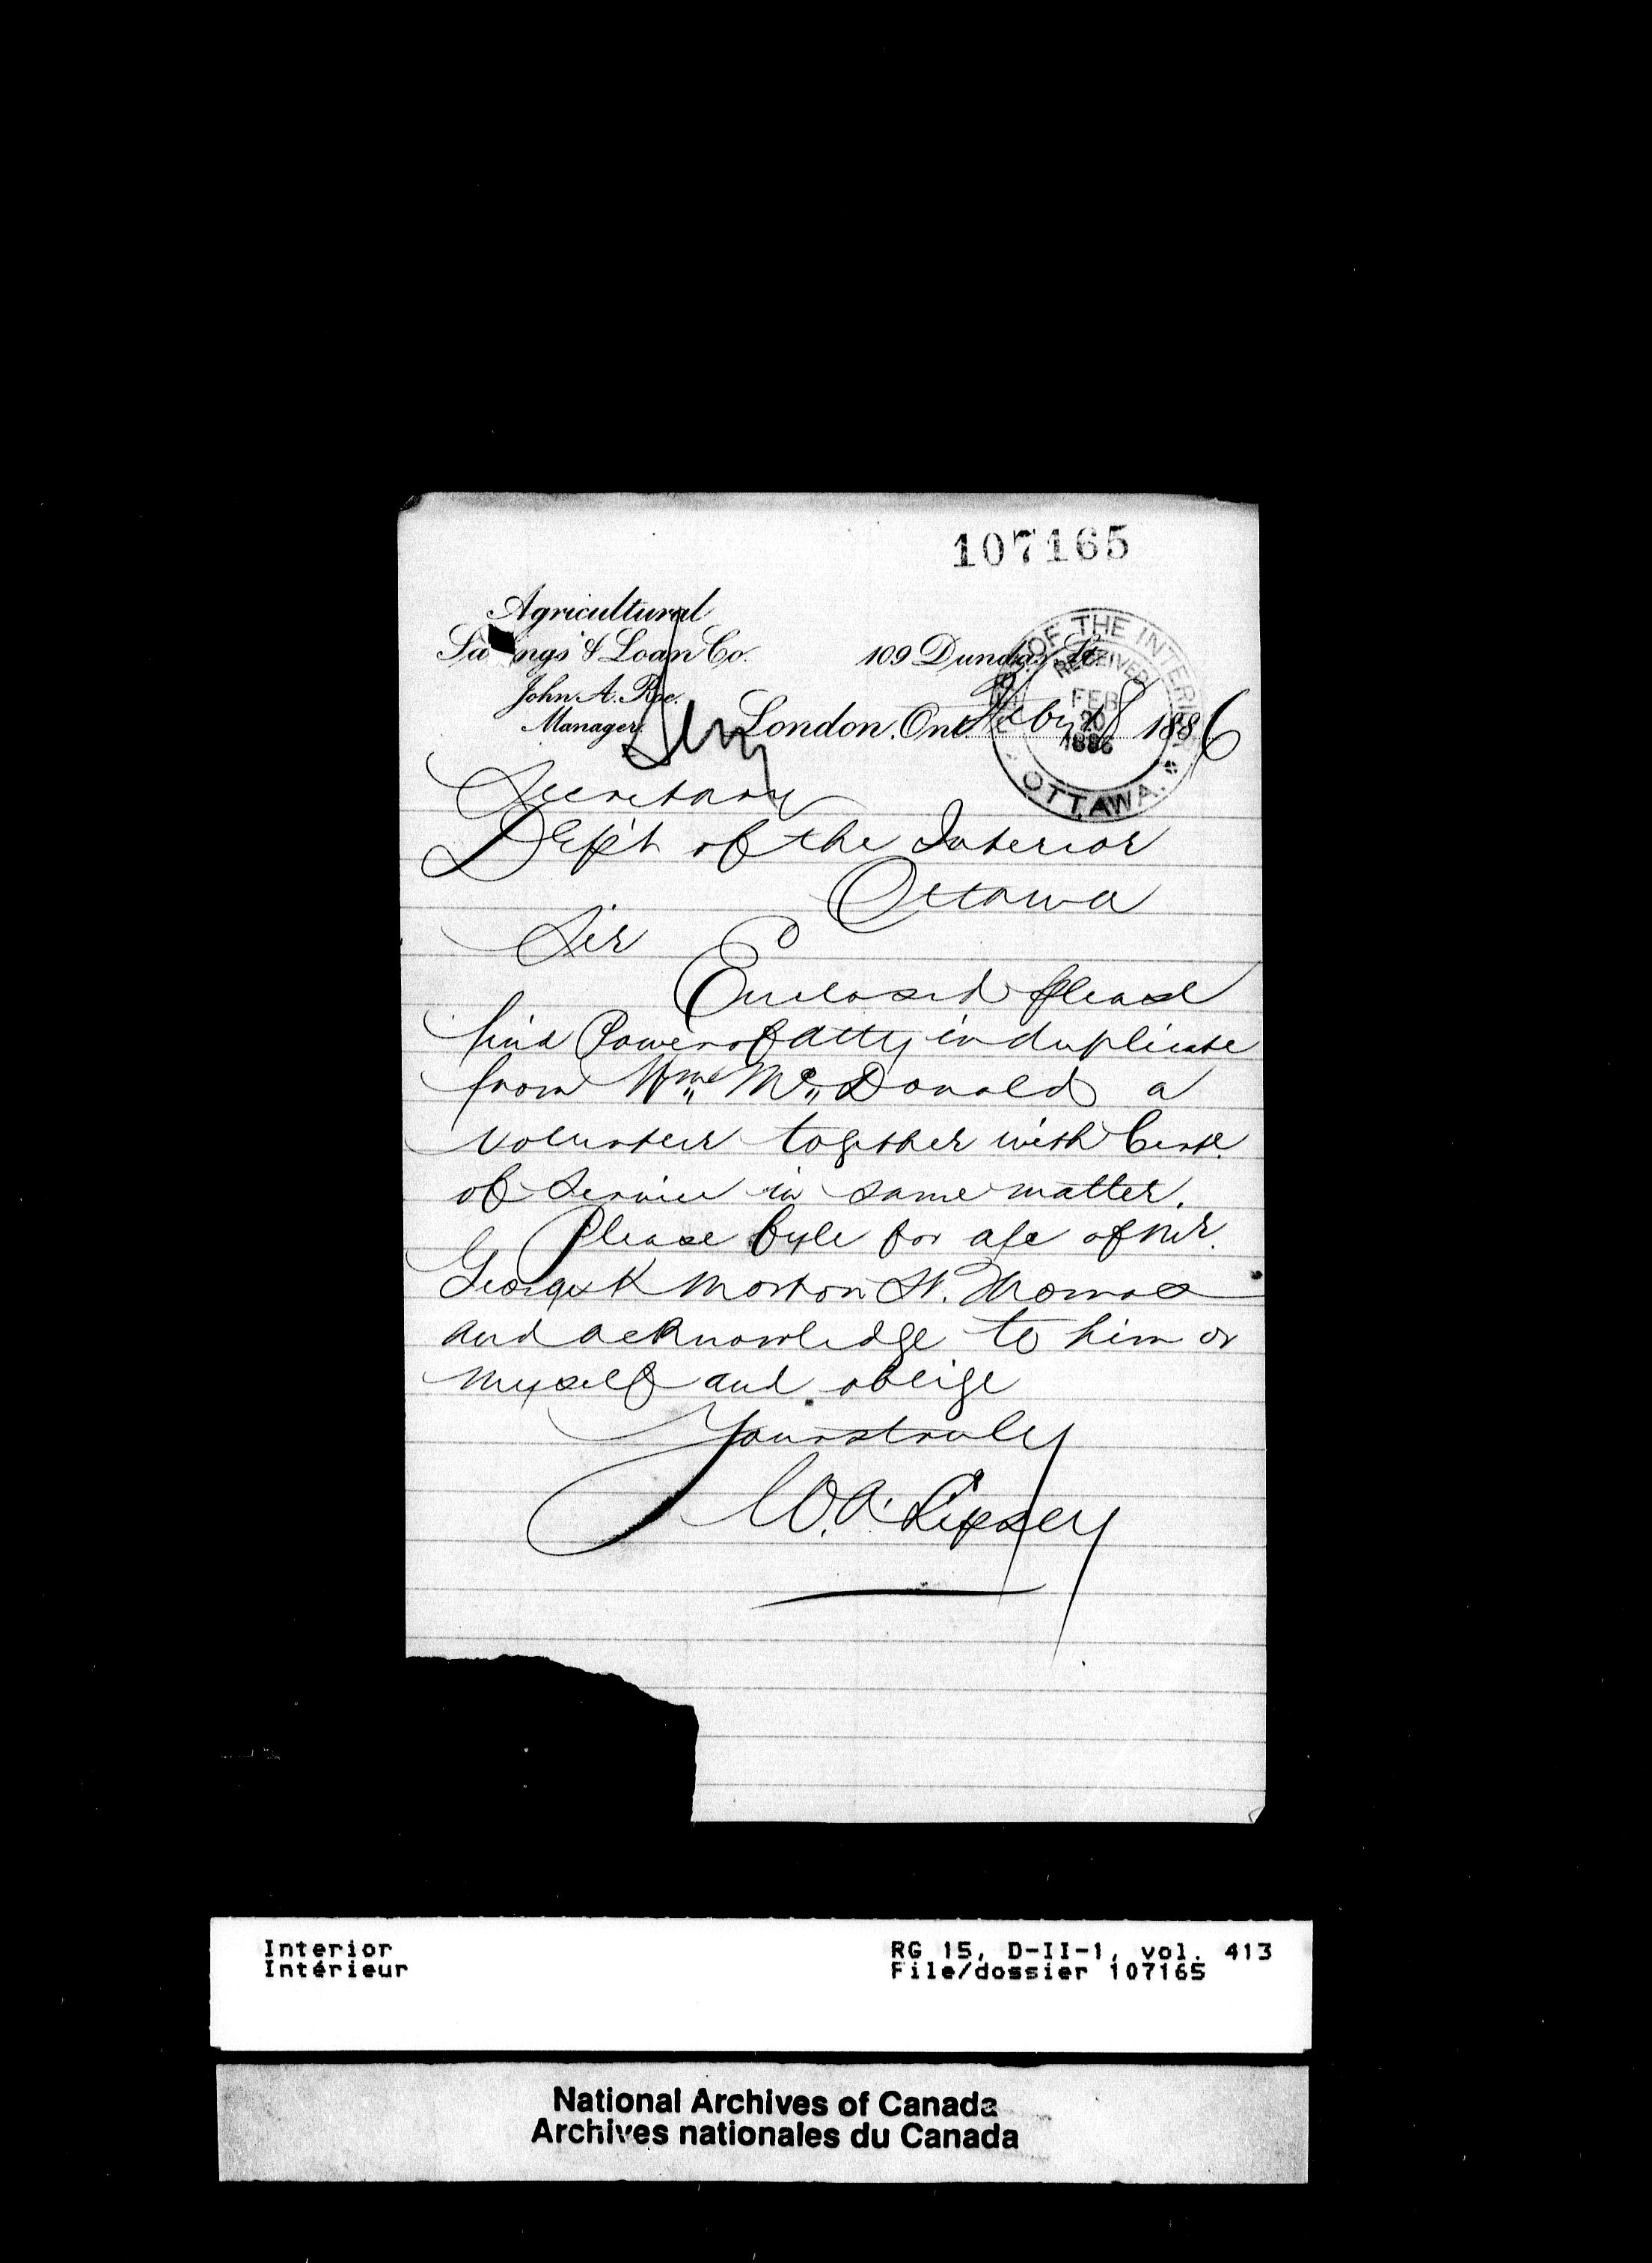 107165
Agricultural
Sa ngs & Loan Co.
109 Dundas St.
John A. Roe.
Manager.
London, Ont. Feby 18 1886
DEPT. OF THE INTERIOR
RECEIVED
FEB
20
1886
OTTAWA.
Secretary
Dep't of the Interior
Ottawa
Sir
Enclosed please
find Power of atty in duplicate
from Wm McDonald a
volunteer together with Cert.
of Service in same matter.
Please fyle for a/c of Mr.
George K Morton St. Thomas
and acknowledge to him or
myself and oblige
Yours truly
W. A. Lipsey
Interior
Intérieur
RG 15, D-II-1, vol. 413
File/dossier 107165
National Archives of Canada
Archives nationales du Canada